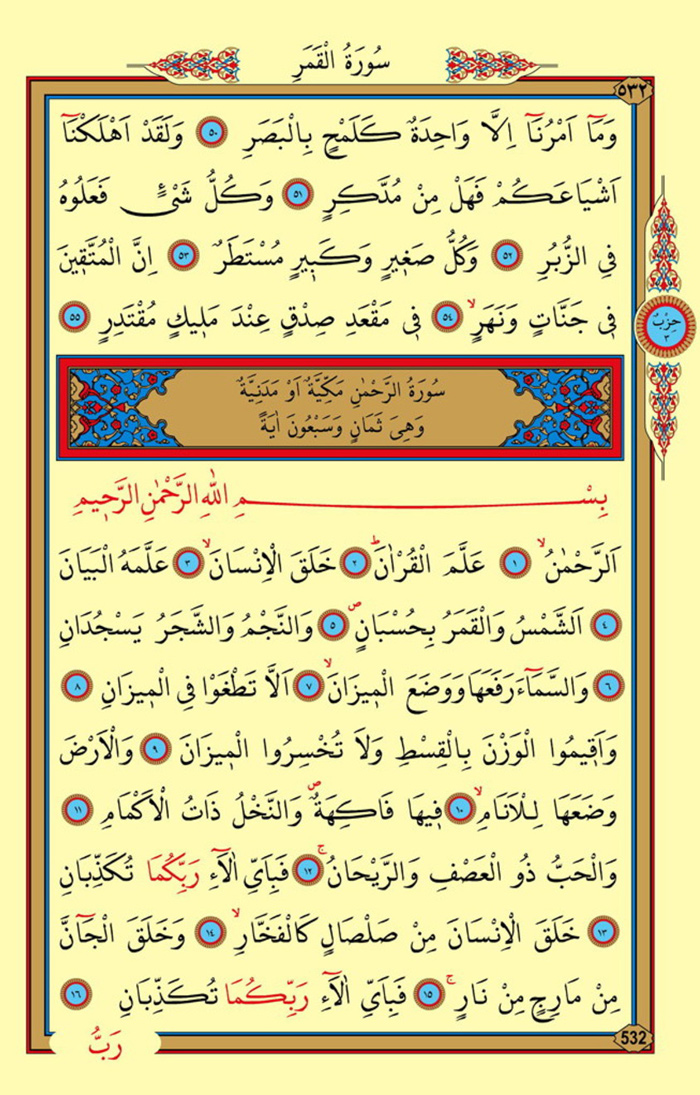 سُورَةُ الْقَمَرِ
٥٣٢
وَمَٓا اَمْرُنَٓا اِلَّا وَاحِدَةٌ كَلَمْحٍ بِالْبَصَرِ ٥٠ وَلَقَدْ اَهْلَكْنَٓا
اَشْيَاعَكُمْ فَهَلْ مِنْ مُدَّكِرٍ ٥١ وَكُلُّ شَيْءٍ فَعَلُوهُ
فِي الزُّبُرِ ٥٢ وَكُلُّ صَغ۪يرٍ وَكَب۪يرٍ مُسْتَطَرٌ ٥٣ اِنَّ الْمُتَّق۪ينَ
ف۪ي جَنَّاتٍ وَنَهَرٍۙ ٥٤ ف۪ي مَقْعَدِ صِدْقٍ عِنْدَ مَل۪يكٍ مُقْتَدِرٍ ٥٥
حِزْبٌ
٣
سُورَةُ الرَّحْمٰنِ مَكِّيَّةٌ اَوْ مَدَنِيَّةٌ
وَهِيَ ثَمَانٍ وَسَبْعُونَ اٰيَةً
بِسْمِ اللّٰهِ الرَّحْمٰنِ الرَّح۪يمِ
اَلرَّحْمٰنُۙ ١ عَلَّمَ الْقُرْاٰنَۜ ٢ خَلَقَ الْاِنْسَانَۙ ٣ عَلَّمَهُ الْبَيَانَ
٤ اَلشَّمْسُ وَالْقَمَرُ بِحُسْبَانٍۖ ٥ وَالنَّجْمُ وَالشَّجَرُ يَسْجُدَانِ
٦ وَالسَّمَٓاءَ رَفَعَهَا وَوَضَعَ الْم۪يزَانَۙ ٧ اَلَّا تَطْغَوْا فِي الْم۪يزَانِ ٨
وَاَق۪يمُوا الْوَزْنَ بِالْقِسْطِ وَلَا تُخْسِرُوا الْم۪يزَانَ ٩ وَالْاَرْضَ
وَضَعَهَا لِلْاَنَامِۙ ١٠ ف۪يهَا فَاكِهَةٌۖ وَالنَّخْلُ ذَاتُ الْاَكْمَامِ ١١
وَالْحَبُّ ذُو الْعَصْفِ وَالرَّيْحَانُۚ ١٢ فَبِاَيِّ اٰلَٓاءِ رَبِّكُمَا تُكَذِّبَانِ
١٣ خَلَقَ الْاِنْسَانَ مِنْ صَلْصَالٍ كَالْفَخَّارِۙ ١٤ وَخَلَقَ الْجَٓانَّ
مِنْ مَارِجٍ مِنْ نَارٍۚ ١٥ فَبِاَيِّ اٰلَٓاءِ رَبِّكُمَا تُكَذِّبَانِ ١٦
رَبُّ
532